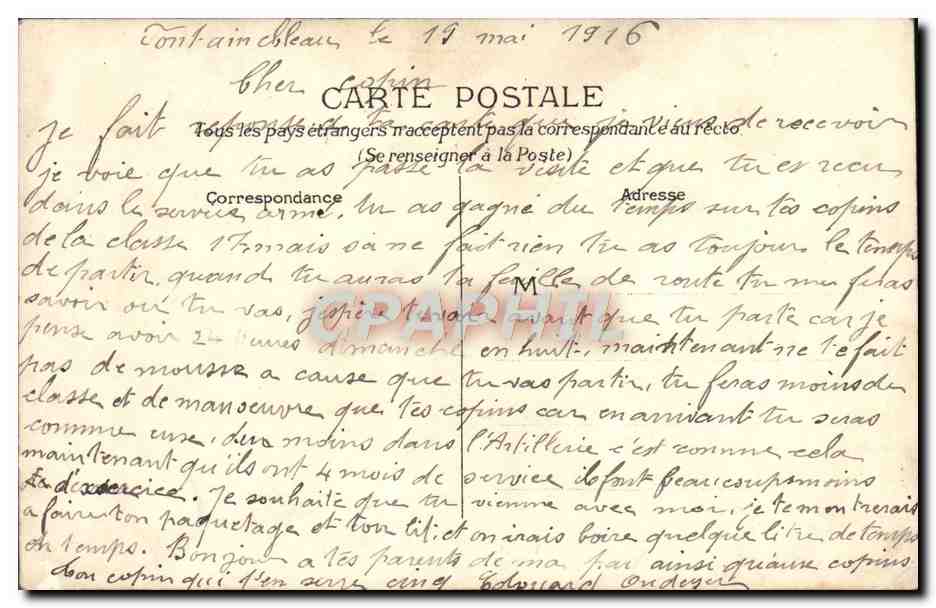 Fontainebleau le 19 mai 1916
Cher copin
CARTE POSTALE
je fait reponse a ta carte que je viens de recevoir
Tous les pays étrangers n'acceptent pas la correspondance au recto
(Se renseigner à la Poste)
je voie que tu as passé la visite et que tu es recu
Correspondance
Adresse
dans le service armé. tu as gagné du temps sur tes copins
de la classe 17. mais sa ne fait rien tu as toujour le temps
de partir. quand tu auras ta feuille de route tu me feras
M
savoir ou tu vas, j'espère te voir avant que tu parte car je
CPAPHIL
pense avoir 24 heures dimanche en huit, maintenant ne te fait
pas de mousse a cause que tu vas partir, tu feras moins de
classe et de manoeuvre que tes copins car en arrivant tu seras
comme euse, du moins dans l'Artillerie c'est comme cela
maintenant qu'ils ont 4 mois de service ils font beaucoup moins
d'exercice. Je souhaite que tu vienne avec moi, je te montrerais
a faire ton paquetage et ton lit, et on irais boire quelque litre de temps
en temps. Bonjour a tes parents de ma par ainsi qu'aux copins
ton copin qui t'en serre cinq Edouard